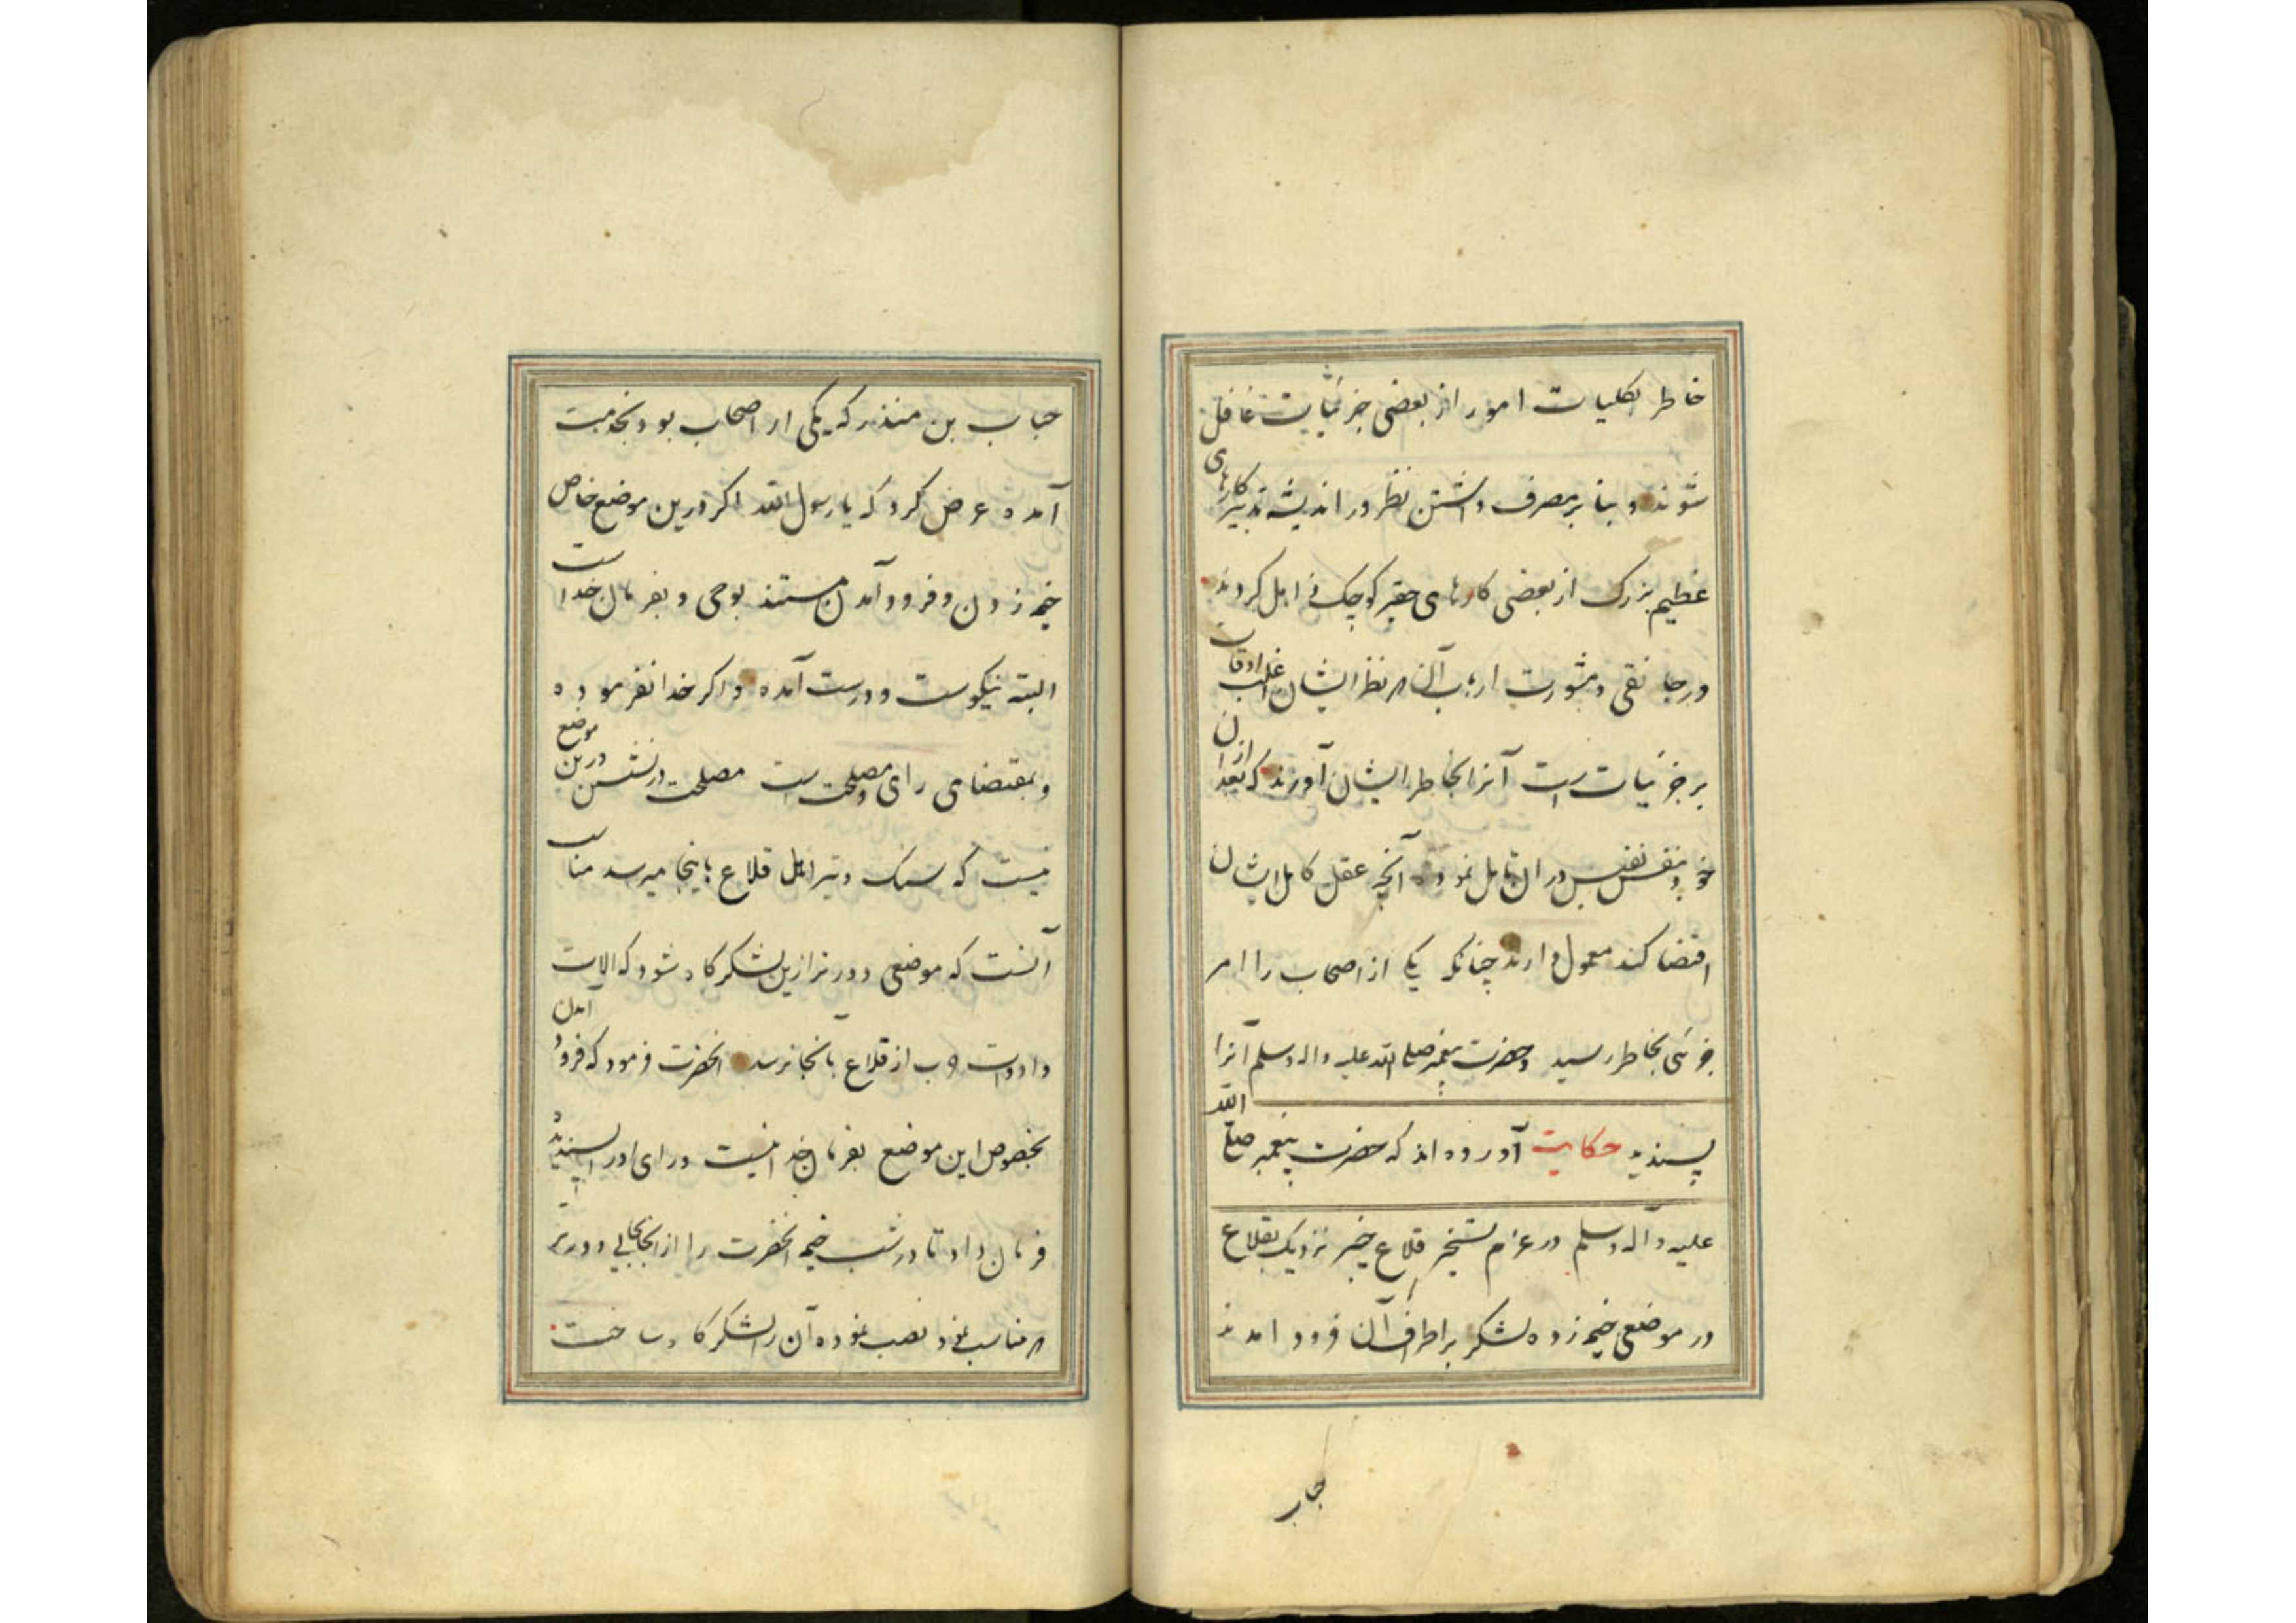 خاطر بکلیات امور از بعضی جزئیات غافل
شوند و بنا بر مصرف داشتن نظر در اندیشه تدبیر کارهای
عظیم بزرک از بعضی کارهای حقیر کوچک ذاهل کردند
ورجا نقی و مشورت ارباب آن که نظر ایشان اغلب اوقات
بر جزئیات است آنرا بخاطر ایشان آورند که بعد از ان
خود بنفس نفیس در ان تامل نموده آنچه عقل کامل ایشان
اقتضا کند معمول دارند چنانکه یکی از اصحاب را امر
جزئی بخاطر رسید و حضرت پیغمبر صلی الله علیه و اله وسلم آنرا
پسندید حکایت آورده اند که حضرت پیغمبر صلی الله
علیه و آله وسلم در عزم تسخیر قلاع خیبر نزدیک بقلاع
در موضعی خیمه زده لشکر بر اطراف آن فرود امدند
حباب
حباب بن منذر که یکی از اصحاب بود بخدمت
آمده عرض کرد که یا رسول الله اکر درین موضع خاص
خیمه زدن و فرود آمدن مستند بوحی و بفرمان خداست
البته نیکوست و درست آمده و اکر خدا نفرموده
و بمقتضای رای و مصلحت است مصلحت در نشستن درین موضع
نیست که سنک و تیر اهل قلاع باینجا میرسد مناسب
آنست که موضعی دورتر ازین لشکرکاه شود که الات
و ادوات حرب از قلاع بانجا نرسد انحضرت فرمود که فرود آمدن
بخصوص این موضع بفرمان خدا نیست و رای او را پسندیده
فرمان داد تا در شب خیمه انحضرت را از انجا بجایی دورتر
که مناسب نمود نصب نموده آن را لشکرکاه ساخت